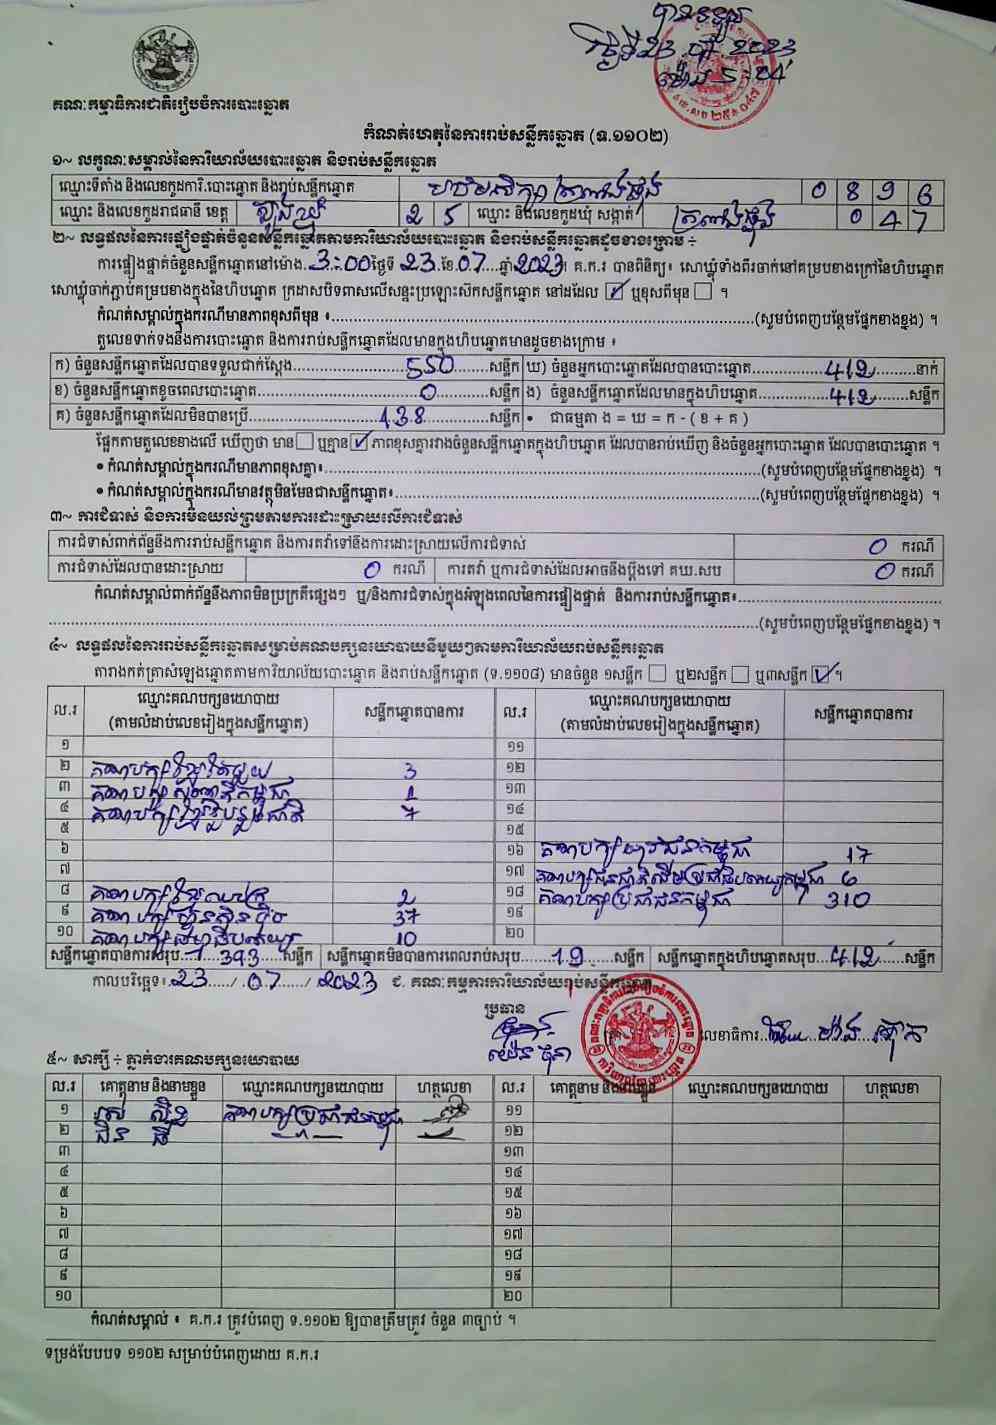 បានទទួល
ថ្ងៃទី23.07.2023
ម៉ោង 5:04
គណៈកម្មាធិការជាតិរៀបចំការបោះឆ្នោត
កំណត់ហេតុនៃការរាប់សន្លឹកឆ្នោត (ទ.១១០២)
១~ លក្ខណៈសម្គាល់នៃការិយាល័យបោះឆ្នោត និងរាប់សន្លឹកឆ្នោត
ឈ្មោះទីតាំង និងលេខកូដការិ.បោះឆ្នោត និងរាប់សន្លឹកឆ្នោត 0 8 9 6
ឈ្មោះ និងលេខកូដរាជធានី ខេត្ត ត្បូងឃ្មុំ 2 5 ឈ្មោះ និងលេខកូដឃុំ សង្កាត់ 0 4 7
២~ លទ្ធផលនៃការផ្ទៀងផ្ទាត់ចំនួនសន្លឹកឆ្នោតតាមការិយាល័យបោះឆ្នោត និងរាប់សន្លឹកឆ្នោតដូចខាងក្រោម ÷
ការផ្ទៀងផ្ទាត់ចំនួនសន្លឹកឆ្នោតនៅម៉ោង.3:00ថ្ងៃទី 23.ខែ.07....ឆ្នាំ2023។ គ.ក.រ បានពិនិត្យ៖ សោឃ្លុំទាំងពីរចាក់នៅគម្របខាងក្រៅនៃហិបឆ្នោត
សោឃ្លុំចាក់ភ្ជាប់គម្របខាងក្នុងនៃហិបឆ្នោត ក្រដាសបិទពាសលើសន្ទះប្រឡោះស៊កសន្លឹកឆ្នោត នៅដដែល ☑ ឬខុសពីមុន ☐ ។
កំណត់សម្គាល់ក្នុងករណីមានភាពខុសពីមុន ៖.....(សូមបំពេញបន្ថែមផ្នែកខាងខ្នង) ។
តួលេខទាក់ទងនឹងការបោះឆ្នោត និងការរាប់សន្លឹកឆ្នោតដែលមានក្នុងហិបឆ្នោតមានដូចខាងក្រោម ៖
ក) ចំនួនសន្លឹកឆ្នោតដែលបានទទួលជាក់ស្តែង.....550.....សន្លឹក ឃ) ចំនួនអ្នកបោះឆ្នោតដែលបានបោះឆ្នោត.....412.....នាក់
ខ) ចំនួនសន្លឹកឆ្នោតខូចពេលបោះឆ្នោត.....0.....សន្លឹក ង) ចំនួនសន្លឹកឆ្នោតដែលមានក្នុងហិបឆ្នោត.....412.....សន្លឹក
គ) ចំនួនសន្លឹកឆ្នោតដែលមិនបានប្រើ.....138.....សន្លឹក • ជាធម្មតា ង = ឃ = ក - ( ខ + គ )
ផ្អែកតាមតួលេខខាងលើ ឃើញថា មាន ☐ ឬគ្មាន ☑ ភាពខុសគ្នារវាងចំនួនសន្លឹកឆ្នោតក្នុងហិបឆ្នោត ដែលបានរាប់ឃើញ និងចំនួនអ្នកបោះឆ្នោត ដែលបានបោះឆ្នោត ។
• កំណត់សម្គាល់ក្នុងករណីមានភាពខុសគ្នា៖.....(សូមបំពេញបន្ថែមផ្នែកខាងខ្នង) ។
• កំណត់សម្គាល់ក្នុងករណីមានវត្ថុមិនមែនជាសន្លឹកឆ្នោត៖.....(សូមបំពេញបន្ថែមផ្នែកខាងខ្នង) ។
៣~ ការជំទាស់ និងការមិនយល់ព្រមតាមការដោះស្រាយលើការជំទាស់
ការជំទាស់ពាក់ព័ន្ធនឹងការរាប់សន្លឹកឆ្នោត និងការតវ៉ាទៅនឹងការដោះស្រាយលើការជំទាស់ 0 ករណី
ការជំទាស់ដែលបានដោះស្រាយ 0 ករណី ការតវ៉ា ឬការជំទាស់ដែលអាចនឹងប្តឹងទៅ គឃ.សប 0 ករណី
កំណត់សម្គាល់ពាក់ព័ន្ធនឹងភាពមិនប្រក្រតីផ្សេងៗ ឬ/និងការជំទាស់ក្នុងអំឡុងពេលនៃការផ្ទៀងផ្ទាត់ និងការរាប់សន្លឹកឆ្នោត៖.....
.....(សូមបំពេញបន្ថែមផ្នែកខាងខ្នង) ។
៤~ លទ្ធផលនៃការរាប់សន្លឹកឆ្នោតសម្រាប់គណបក្សនយោបាយនីមួយៗតាមការិយាល័យរាប់សន្លឹកឆ្នោត
តារាងកត់ត្រាសំឡេងឆ្នោតតាមការិយាល័យបោះឆ្នោត និងរាប់សន្លឹកឆ្នោត (ទ.១១០៨) មានចំនួន ១សន្លឹក ☐ ឬ២សន្លឹក ☐ ឬ៣សន្លឹក ☑ ។
ល.រ ឈ្មោះគណបក្សនយោបាយ (តាមលំដាប់លេខរៀងក្នុងសន្លឹកឆ្នោត) សន្លឹកឆ្នោតបានការ ល.រ ឈ្មោះគណបក្សនយោបាយ (តាមលំដាប់លេខរៀងក្នុងសន្លឹកឆ្នោត) សន្លឹកឆ្នោតបានការ
១ ១១
២ គណបក្សខ្មែរតែមួយ 3 ១២
៣ គណបក្ស 1 ១៣
៤ គណបក្ស 7 ១៤
៥ ១៥
៦ ១៦ គណបក្សយុវជនកម្ពុជា 17
៧ ១៧ គណបក្ស 6
៨ គណបក្ស 2 ១៨ គណបក្សប្រជាជនកម្ពុជា 310
៩ គណបក្សហ៊្វុនស៊ិនប៉ិច 37 ១៩
១០ គណបក្ស 10 ២០
សន្លឹកឆ្នោតបានការសរុប...393.....សន្លឹក សន្លឹកឆ្នោតមិនបានការពេលរាប់សរុប.....19.....សន្លឹក សន្លឹកឆ្នោតក្នុងហិបឆ្នោតសរុប...412.....សន្លឹក
កាលបរិច្ឆេទ៖.23...../.07....../ 2023 ជ. គណៈកម្មការការិយាល័យរាប់សន្លឹកឆ្នោត
ប្រធាន
លេខាធិការ
៥~ សាក្សី ÷ ភ្នាក់ងារគណបក្សនយោបាយ
ល.រ គោត្តនាម និងនាមខ្លួន ឈ្មោះគណបក្សនយោបាយ ហត្ថលេខា ល.រ គោត្តនាម និងនាមខ្លួន ឈ្មោះគណបក្សនយោបាយ ហត្ថលេខា
១ គណបក្សប្រជាជនកម្ពុជា ១១
២ ១២
៣ ១៣
៤ ១៤
៥ ១៥
៦ ១៦
៧ ១៧
៨ ១៨
៩ ១៩
១០ ២០
កំណត់សម្គាល់ ៖ គ.ក.រ ត្រូវបំពេញ ទ.១១០២ ឱ្យបានត្រឹមត្រូវ ចំនួន ៣ច្បាប់ ។
ទម្រង់បែបបទ ១១០២ សម្រាប់បំពេញដោយ គ.ក.រ